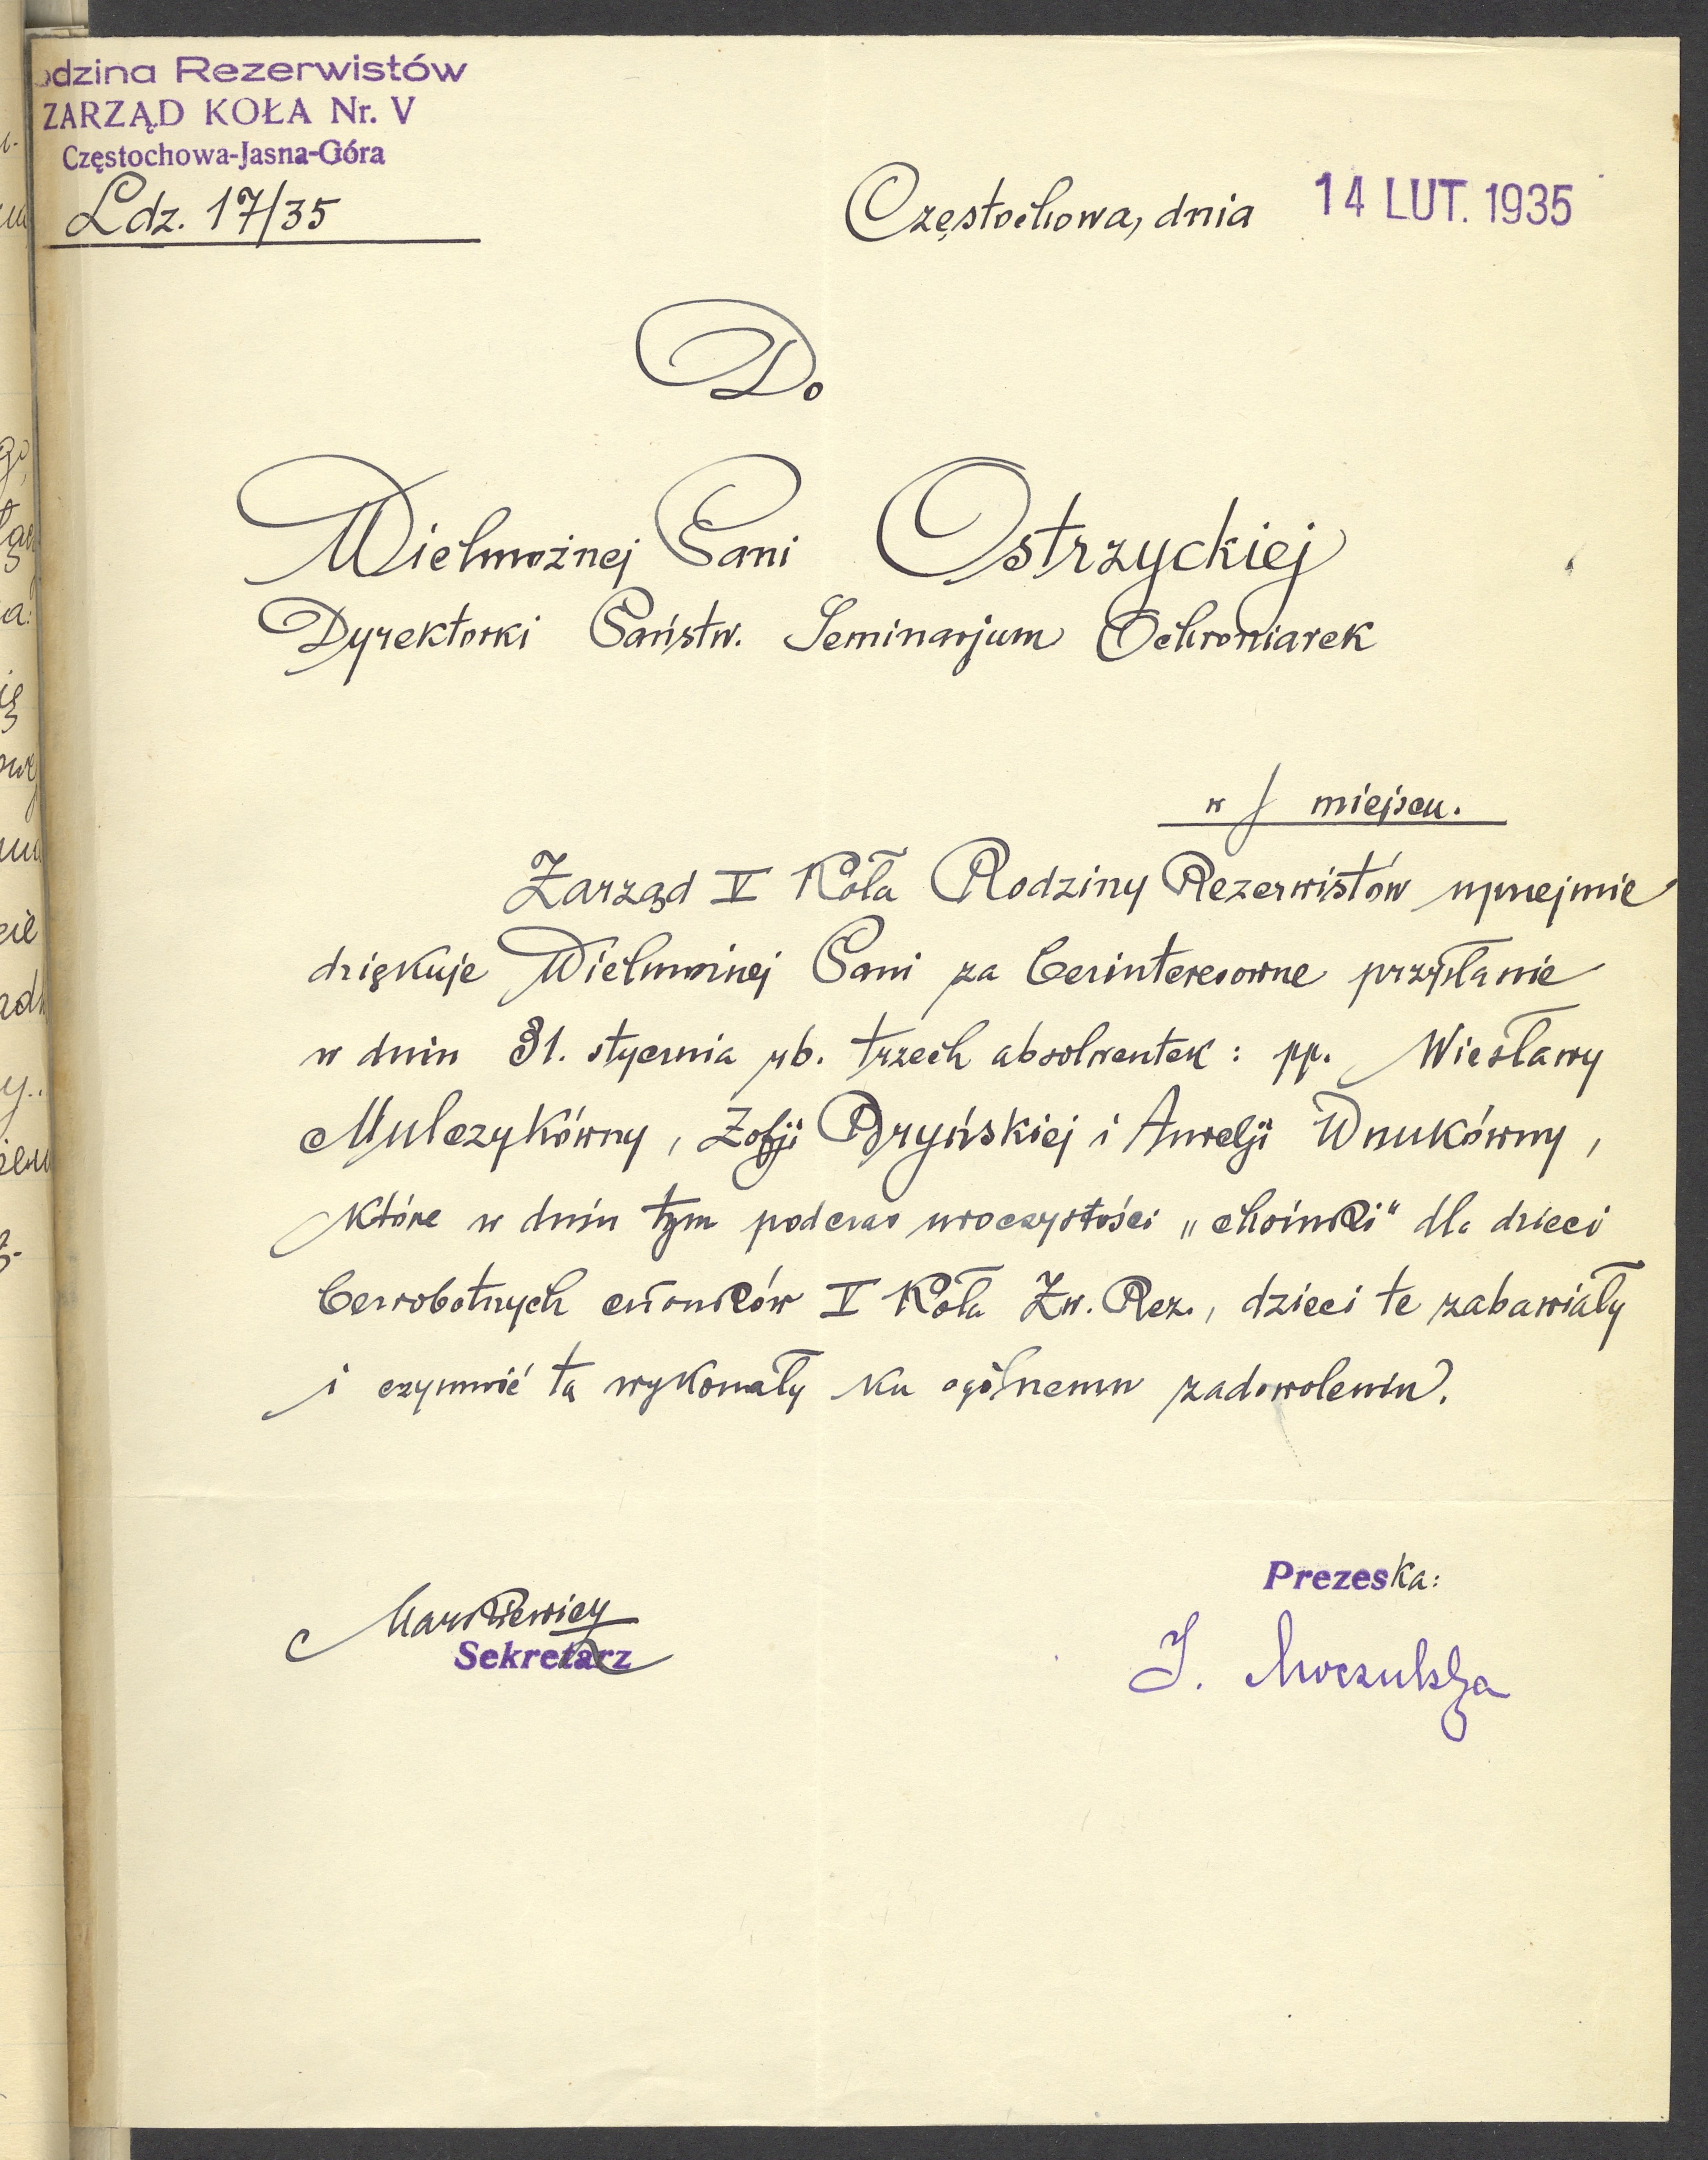 odzina Rezerwistów
ZARZĄD KOŁA Nr. V
Częstochowa-Jasna-Góra
Ldz. 17/35
Częstochowa, dnia 14 LUT. 1935
Do
Wielmożnej Pani Ostrzyckiej
Dyrektorki Państw. Seminarjum Ochroniarek
w / miejscu.
Zarząd V Koła Rodziny Rezerwistów uprzejmie
dziękuje Wielmożnej Pani za bezinteresowne przysłanie
w dniu 31. stycznia rb. trzech absolwentek: pp. Wiesławy
Mulczykówny, Zofji Dryńskiej i Aurelji Wnukówny,
które w dniu tym podczas uroczystości „choinki" dla dzieci
bezrobotnych członków V Koła Zw. Rez., dzieci te zabawiały
i czynność tą wykonały ku ogólnemu zadowoleniu.
Prezeska:
Markiewicz
Sekretarz
J.